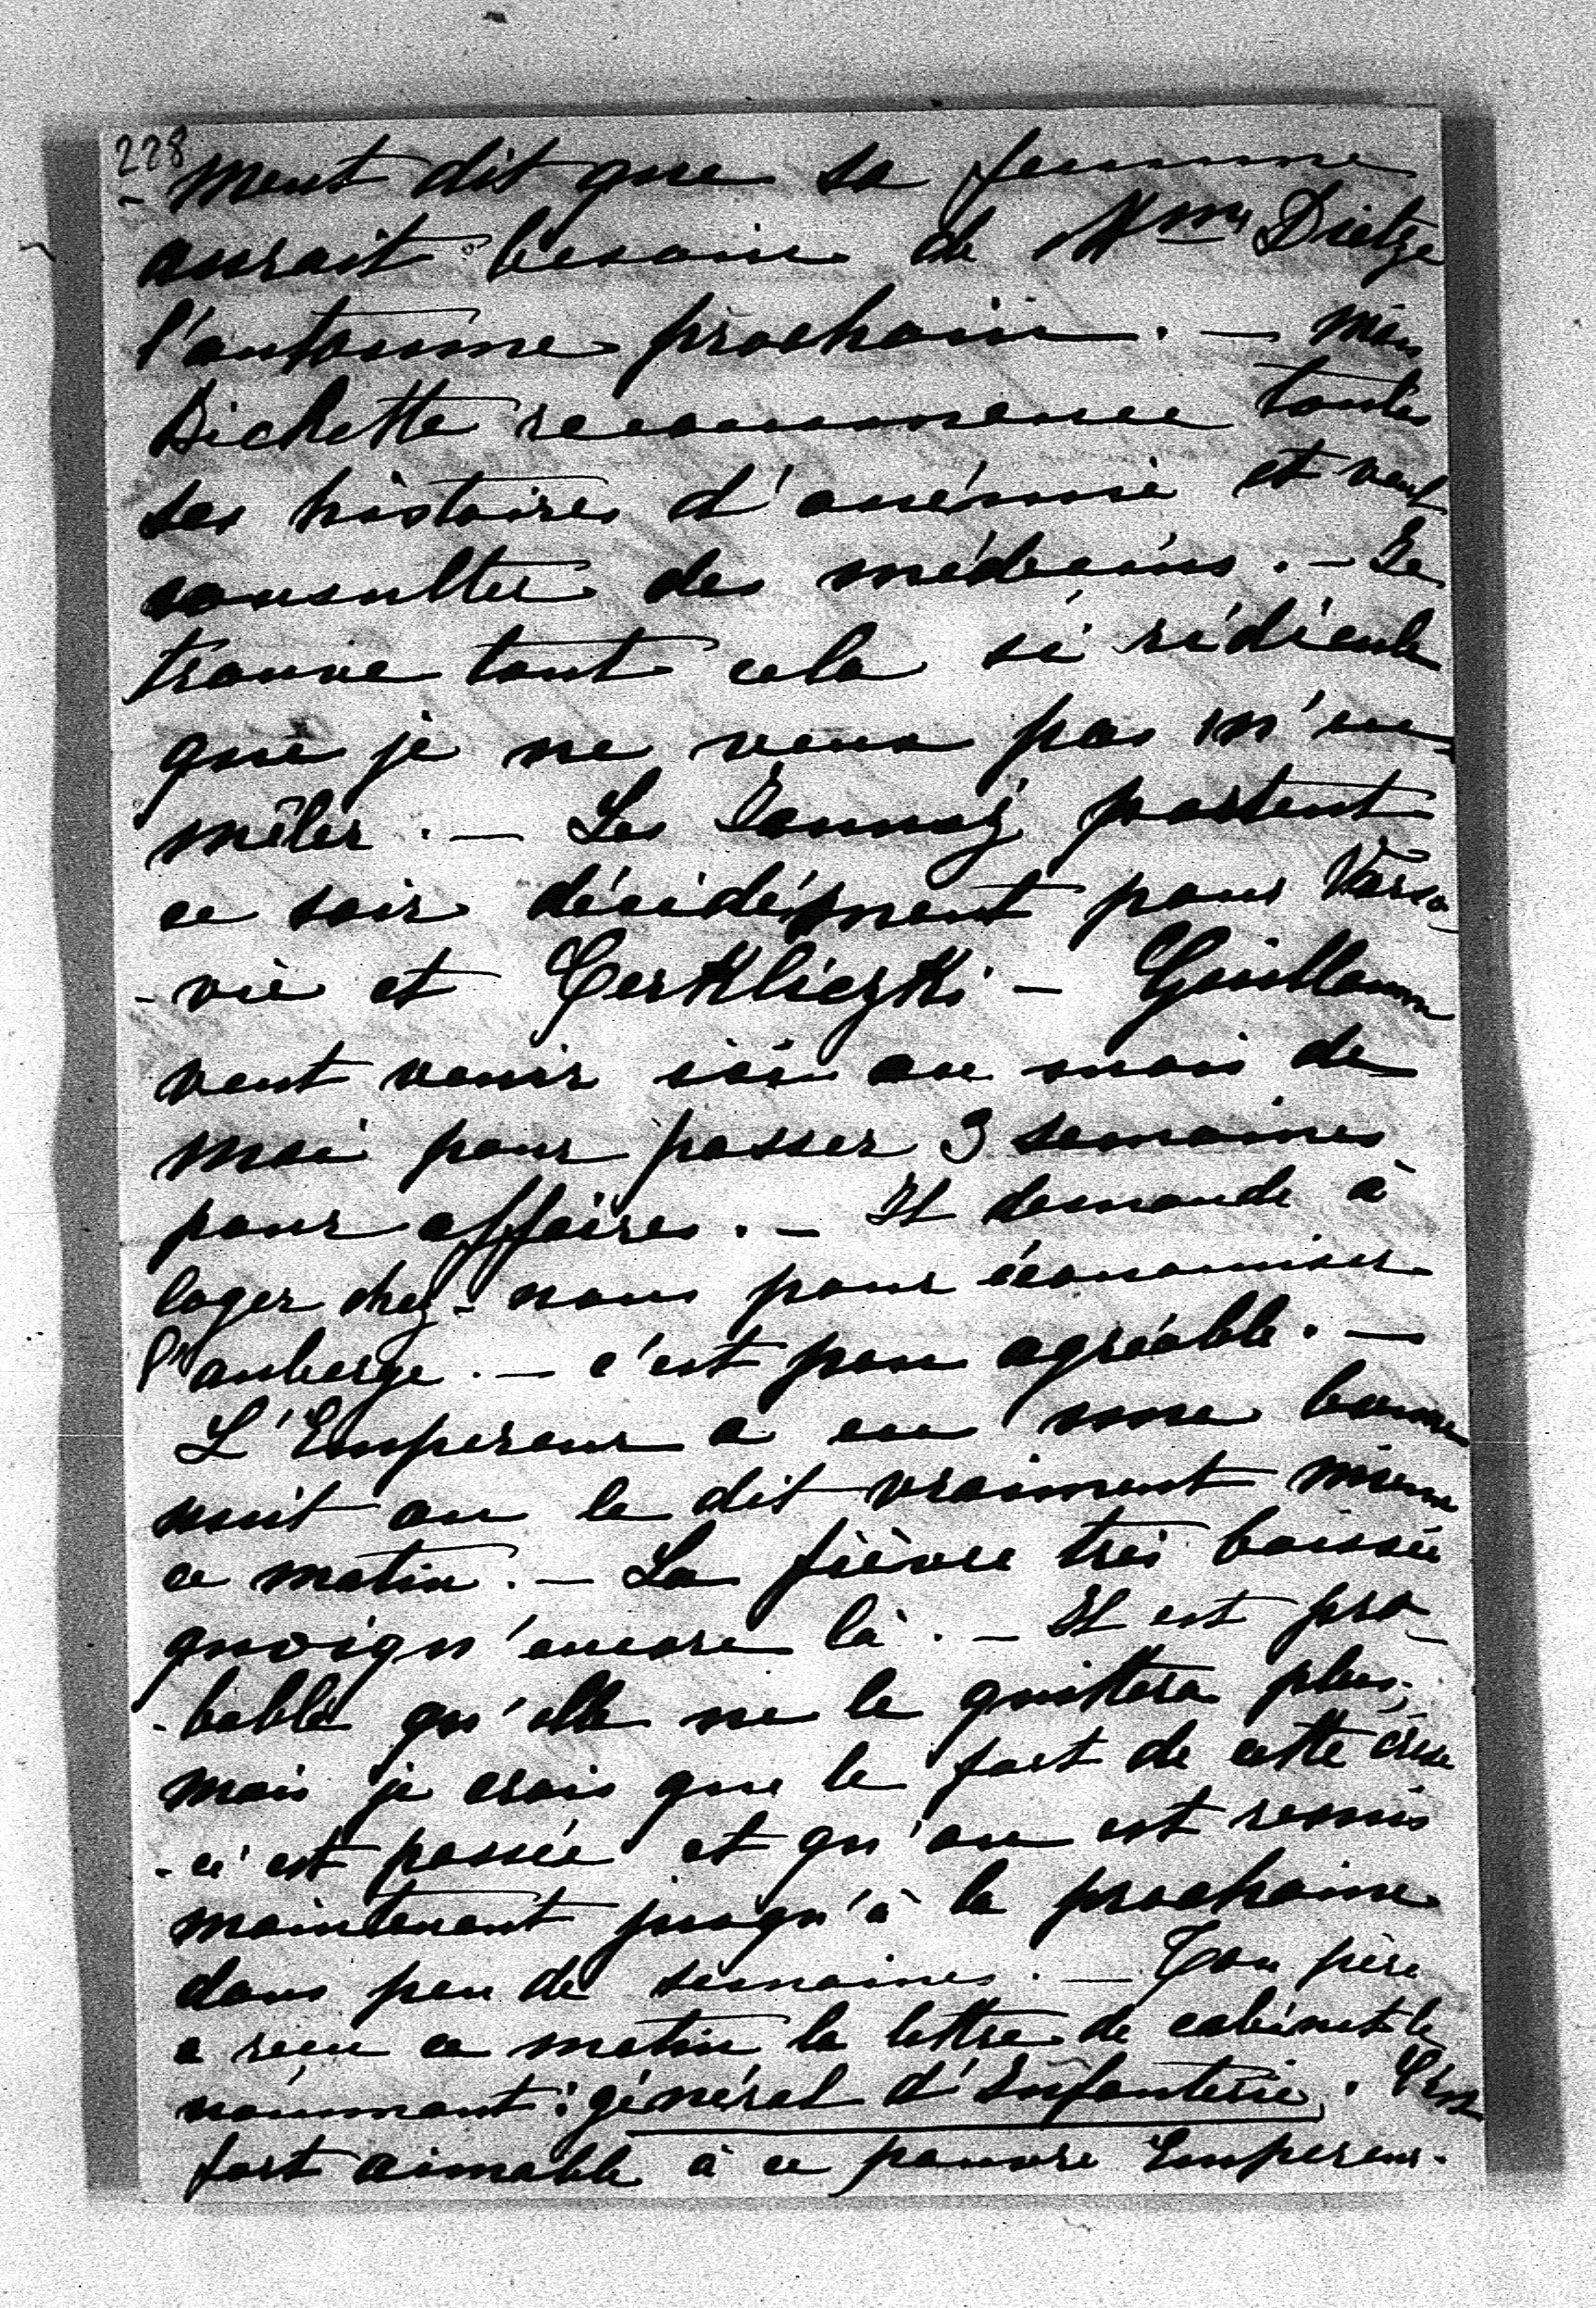 228
- ment dit que sa femme
aurait besoin de Mme Dietze
l'automne prochain. — Mais
Bichette recommence toutes
ses histoires d'anémie et veut
consulter des médecins. — Je
trouve tout cela si ridicule
que je ne veux pas m'en
mêler. — Les partent
ce soir décidément pour Varso-
- vie et — Guillaume
veut venir ici au mois de
mai pour passer 3 semaines
pour affaires. — Il demande à
loger chez-nous pour économiser
l'auberge. — c'est peu agréable. —
L'Empereur a eu une bonne
nuit on le dit vraiment mieux
ce matin. — La fièvre très baissée
quoiqu'encore là. — Il est pro-
- bable qu'elle ne le quittera plus,
mais je crois que le fort de cette crise
- ci est passée et qu'on est remis
maintenant jusqu'à la prochaine
dans peu de semaines. — Ton père
a reçu ce matin la lettre de cabinet le
nommant: général d'Infanterie. C'est
fort aimable à ce pauvre Empereur.